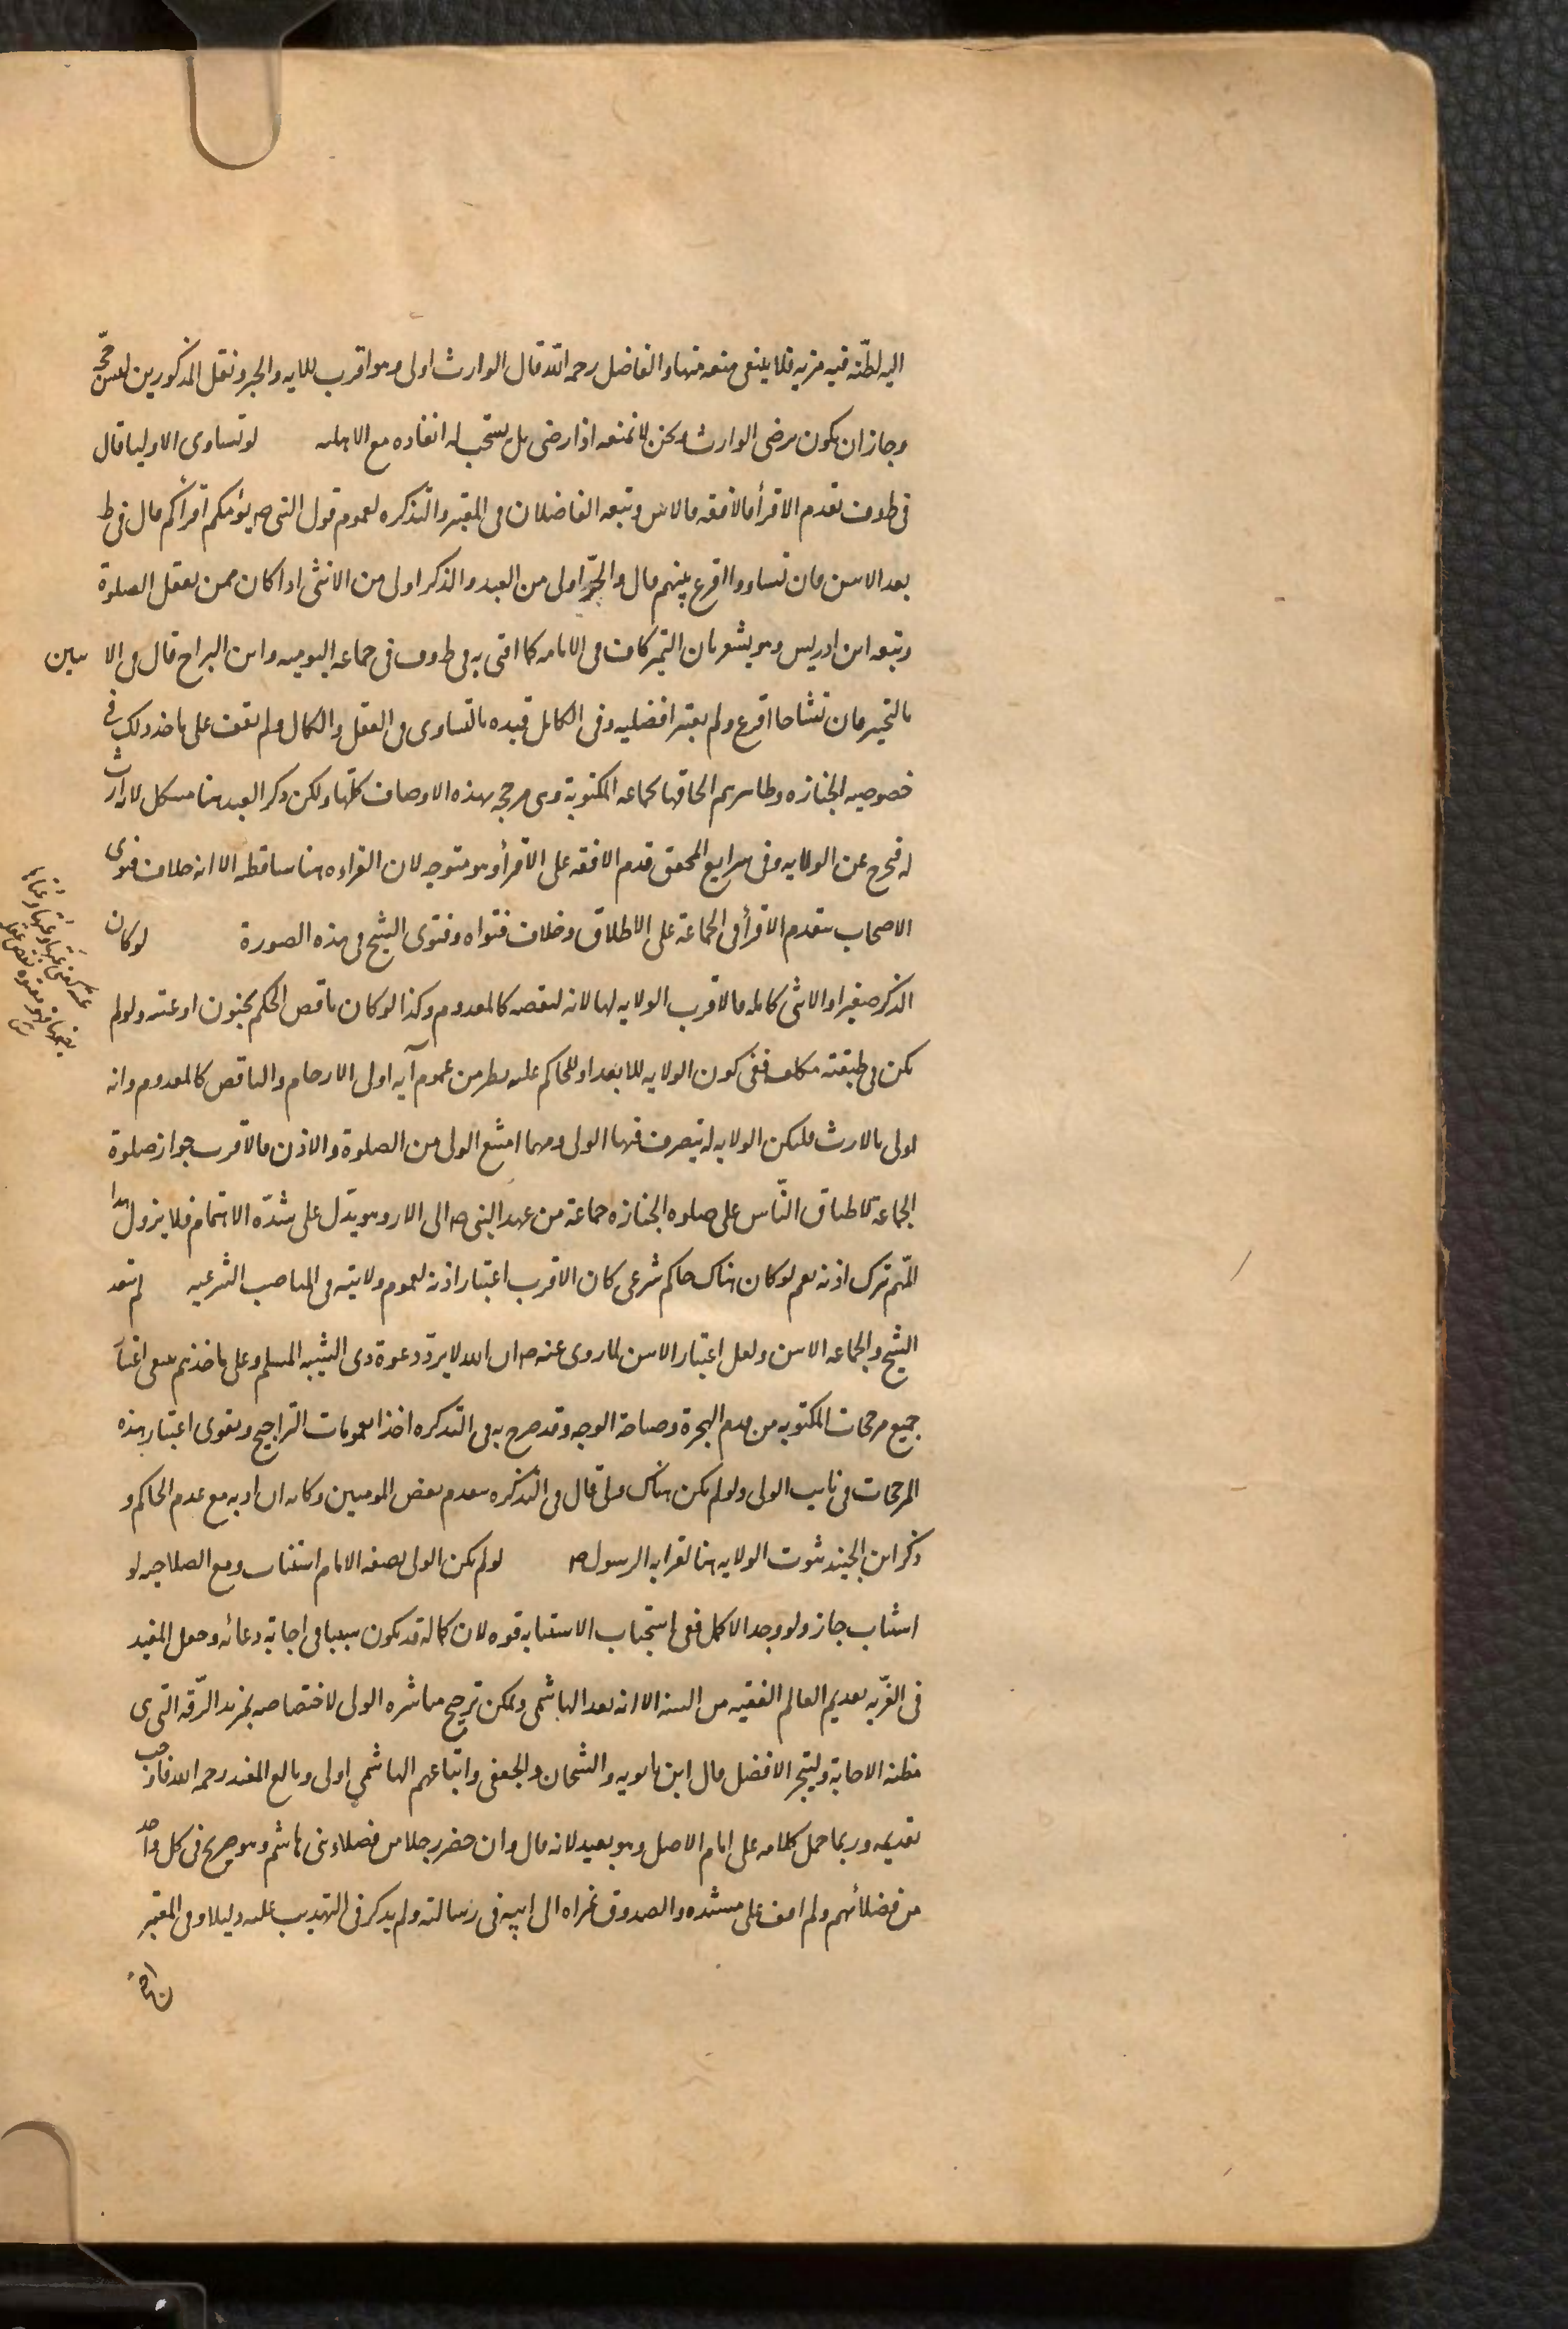 اليه لظنه فيه مزيه فلا ينبغى منعه منها والفاضل رحمه الله قال الوارث اولى وهو اقرب للايه والخبر ونقل المذكورين ليس حجّه
وجاز ان يكون برضى الوارث ونحن لا نمنعه اذا رضى بل يستحب له انفاذه مع الاهليه لو تساوى الاوليا قال
فى ط وف يقدم الاقرأ فالافقه فالاسن وتبعه الفاضلان فى المعتبر والتذكره لعموم قول النبى ص يؤمكم اقرأكم قال فى ط
بعد الاسن فان تساووا اقرع بينهم قال والحرّ اولى من العبد والذكر اولى من الانثى اذا كان ممن يعقل الصلوة
وتبعه ابن ادريس وهو يشعر بان التميز كاف فى الامامه كما افتى به فى ط وف فى جماعه اليوميه وابن البراج قال فى الا سين
بالتخيير فان تشاحا اقرع ولم يعتبر افضليه وفى الكامل قيده بالتساوى فى العقل والكمال ولم نقف على ماخذ ذلك فى
خصوصيه الجنازه وظاهرهم الحاقها بجماعه المكتوبة وهى مرجحه بهذه الاوصاف كلها ولكن ذكر العبد هنا مشكل لانه لا ارث
له فيخرج عن الولايه وفى شرايع المحقق قدم الافقه على الاقرأ وهو متوجه لان القراءه هنا ساقطه الا انه خلاف فتوى
الاصحاب بتقدم الاقرأ فى الجماعة على الاطلاق وخلاف فتواه وفتوى الشيخ فى هذه الصورة لو كان
الذكر صغيرا والانثى كامله فالاقرب الولايه لها لانه لنقصه كالمعدوم وكذا لو كان ناقص الحكم بجنون او عته ولو لم
يكن فى طبقته مكلف ففى كون الولايه للابعد او للحاكم عليه نظر من عموم آيه اولى الارحام والناقص كالمعدوم وانه
اولى بالارث فلتكن الولايه له يتصرف فيها الولى ومهما امتنع الولى من الصلوة والاذن فالاقرب جواز صلوة
الجماعة لاطباق النّاس على صلوه الجنازه جماعة من عهد النبى ص الى الان وهو يدّل على شدّه الاهتمام فلا يزول هذا
المّهم بترك اذنه نعم لو كان هناك حاكم شرعى كان الاقرب اعتبار اذنه لعموم ولايته فى المناصب الشرعيه لم يعتبر
الشيخ والجماعه الاسن ولعل اعتبار الاسن لما روى عنه ص ان الله لا يردّ دعوة ذى الشيبه المسلم وعلى ماخذهم ينبغى اعتبار
جميع مرجحات المكتوبه من قدم الهجرة وصباحة الوجه وقد صرح به فى التذكره اخذا بعمومات التراجيح ويقوى اعتبار هذه
المرجحات فى نايب الولى ولو لم يكن هناك ولى قال فى التذكره يتقدم بعض المومنين وكانه اراد به مع عدم الحاكم و
ذكر ابن الجنيد ثبوت الولايه هنا لقرابه الرسول ص لو لم يكن الولى بصفه الامام استناب ومع الصلاحيه لو
استناب جاز ولو وجد الاكمل ففى استحباب الاستنابه قوه لان كماله قد يكون سببا فى اجابة دعائه وجعل المفيد
فى الغرّيه تقديم العالم الفقيه من السنه الا انه بعد الهاشمى ويمكن ترجيح مباشره الولى لاختصاصه بمزيد الرّقه التى هى
مظنه الاجابة وليتخير الافضل قال ابن بابويه والشيخان والجعفى واتباعهم الهاشمى اولى وبالغ المفيد رحمه الله فاوجب
تقديمه وربما حمل كلامه على امام الاصل وهو بعيد لانه قال وان حضر رجلا من فضلاء بنى هاشم وهو صريح فى كل واحد
من فضلائهم ولم اقف على مستنده والصدوق عزاه الى ابيه فى رسالته ولم يذكر فى التهذيب عليه دليلا وفى المعتبر